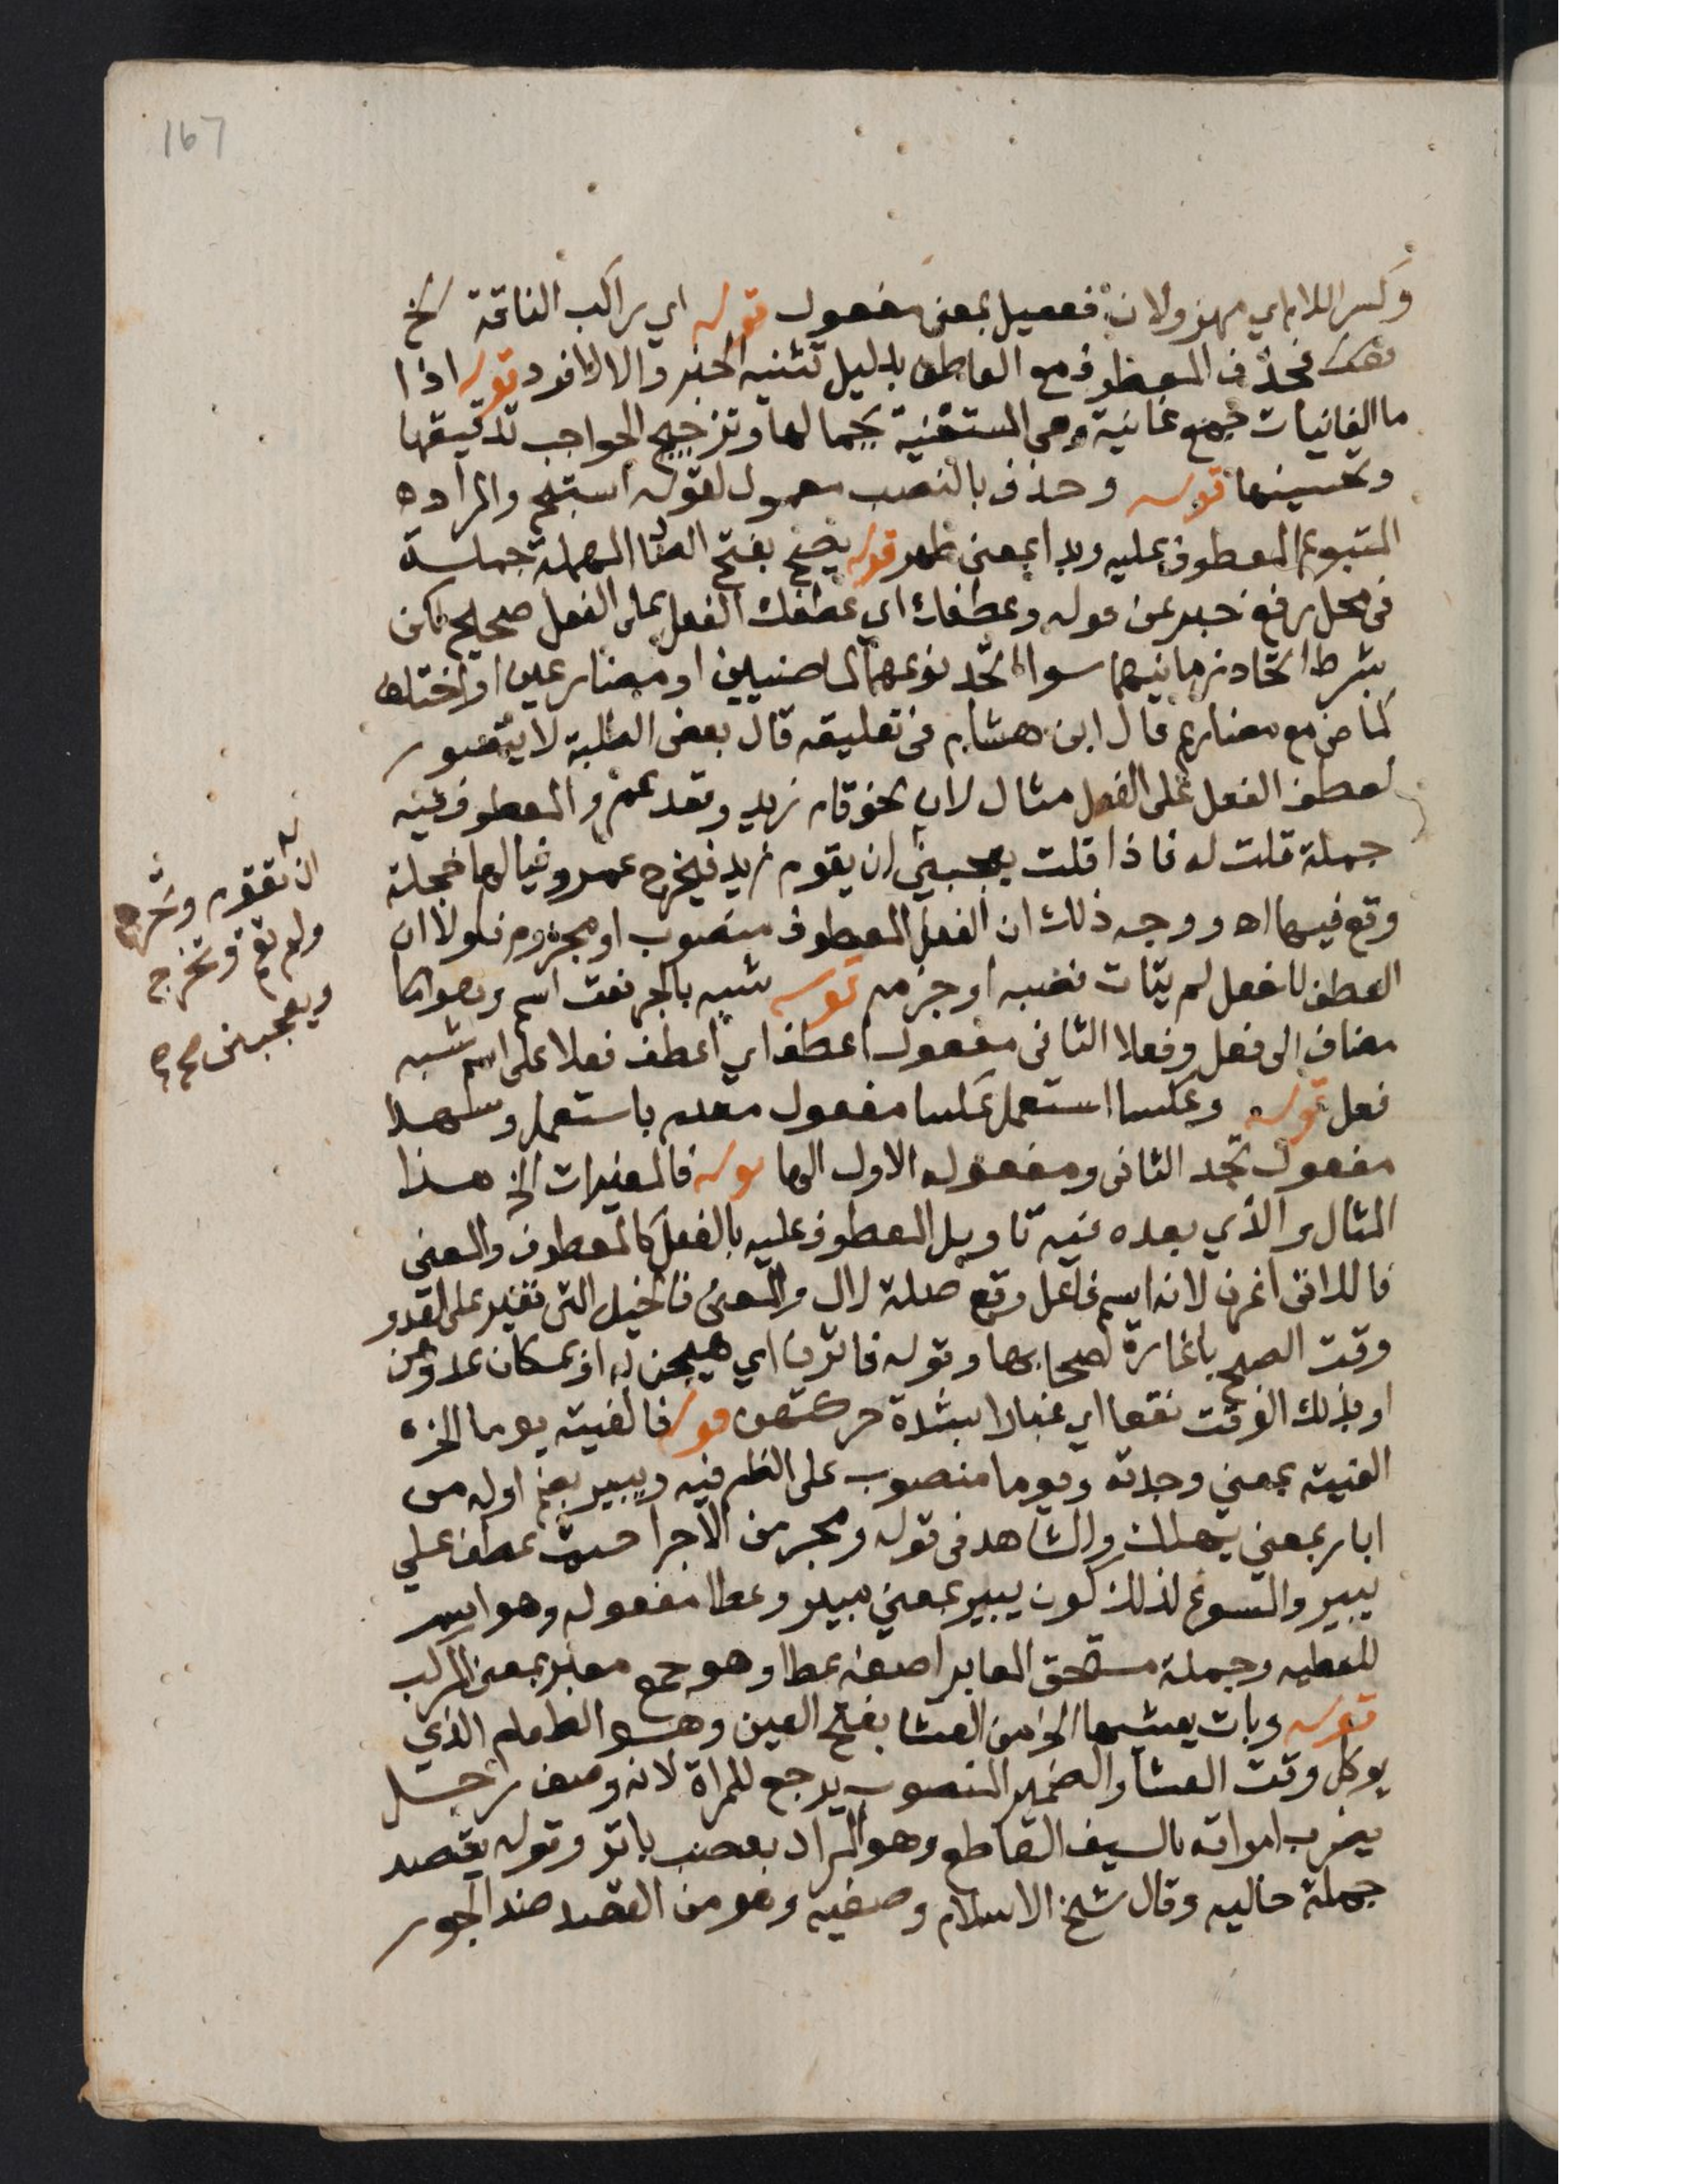 167
وكسر اللام اي مهزولان فعيل بمعنى مفعول قوله اي راكب الناقة الخ
فحذف المعطوف مع العاطف بدليل تثنية الخبر والا لافرد قوله اذا
ما الغانيات جمع غانية وهي المستغنية بجمالها وتزجيج الحواجب تدقيقها
وتحسينها قوله وحذف بالنصب معمول لقوله استبح والمراد
المتبوع المعطوف عليه وبدا بمعنى ظهر قوله يصح بفتح الصاد المهملة جملة
في محل رفع خبر عن قوله وعطفك اي عطفك الفعل على الفعل صحيح لكن
بشرط اتحاد زمانيهما سوا اتحد نوعهما كماضيين او مضارعين او اختلف
كماض مع مضارع قال ابن هشام في تعليقه قال بعض الطلبة لا يتصور
لعطف الفعل على الفعل مثال لان نحو قام زيد وقعد عمرو المعطوف فيه
جملة قلت له فاذا قلت يعجبني ان يقوم زيد فيخرج عمرو فيالها خجلة
وقع فيها اه ووجه ذلك ان الفعل المعطوف منصوب او مجزوم فلولا ان
العطف للفعل لم يتات نصبه او جزمه قوله شبه بالجر نعت اسم وهو
مضاف الى فعل وفعلا الثاني مفعول اعطف اي اعطف فعلا على اسم شبه
فعل قوله وعكسا استعمل عكسا مفعول مقدم باستعمل وسهلا
مفعول تجد الثاني ومفعوله الاول الها قوله فالمغيرات الخ هذا
المثال والذي بعده فيه تاويل المعطوف عليه بالفعل كالمعطوف والمعنى
فاللاتي اغرن لانه اسم فاعل وقع صلة لال والمعنى فالخيل التي تغير على العدو
وقت الصبح باغارة اصحابها وقوله فاثرن اي هيجن به اي بمكان عدوهن
او بذلك الوقت نقعا اي غبارا بشدة حركتهن قوله فالفيته يوما الخ
الفيته بمعنى وجدته ويوما منصوب على الظرفيه ويبير بضم اوله من
ابار بمعنى يهلك والشاهد في قوله ومجر من الاجرا حيث عطف على
يبير والمسوغ لذلك كون يبير بمعنى مبير وعطا مفعوله وهو اسم
للعطيه وجملة يستحق المعابر اصفة عطا وهو جمع معبر بمعنى المركب
قوله وبات يعشيها الخ من العشا بفتح العين وهو الطعام الذي
يوكل وقت العشا والضمير المنصوب يرجع للمراة لانه وصف رجل
يضرب امراته بالسيف القاطع وهو المراد بعضب باتر وقوله يقصد
جملة حاليه وقال شيخ الاسلام وصفية وهو من القصد ضد الجور
ان تقوم وتخرج
ولم تقم وتخرج
ويعجبني صح